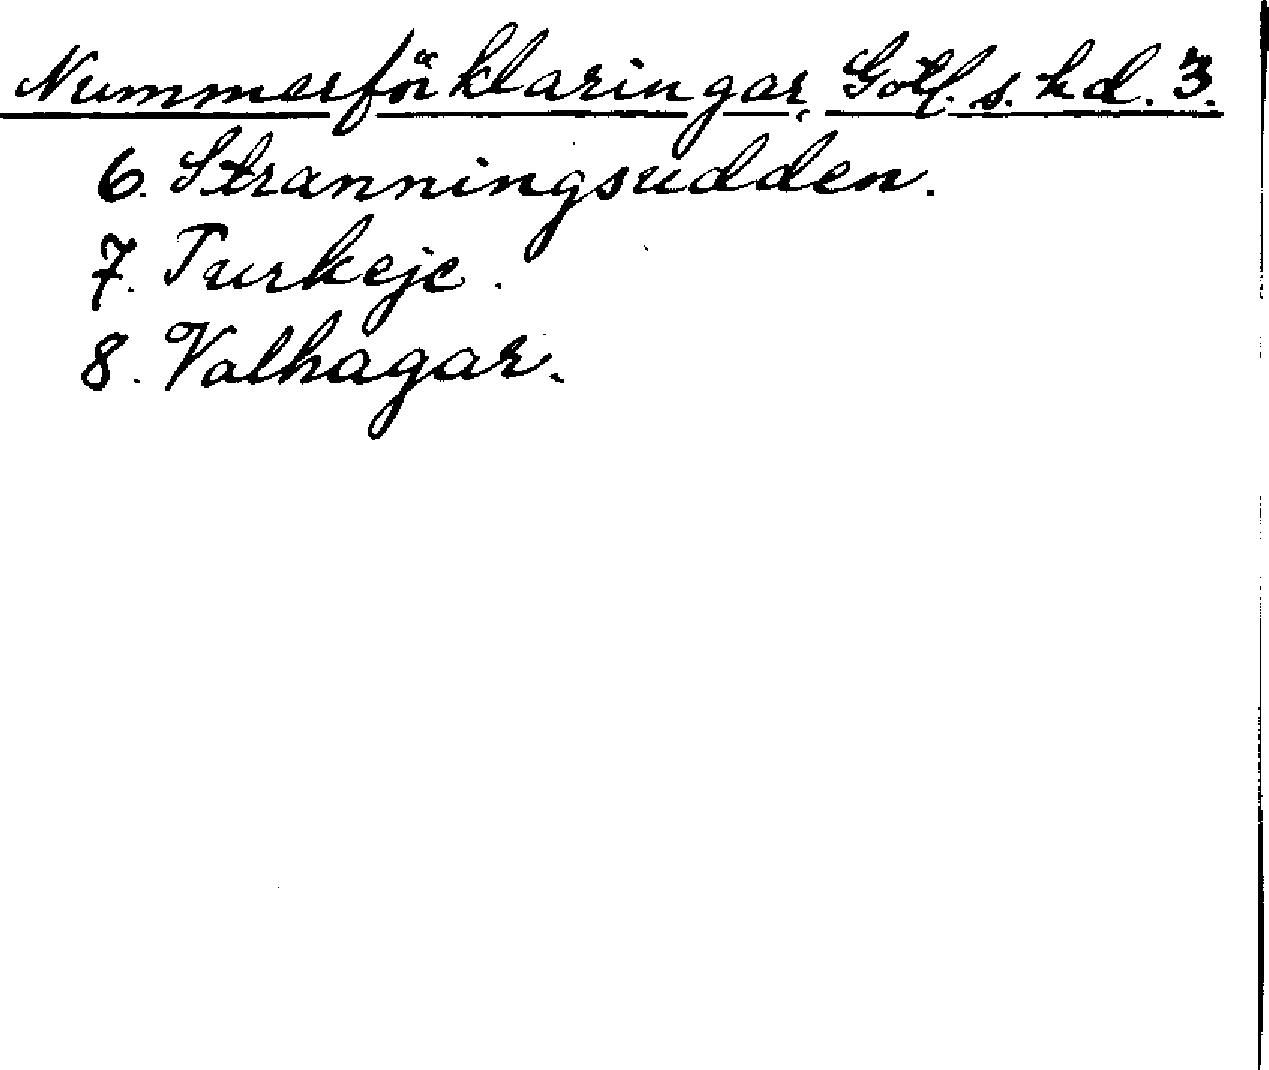 Nummerförklaringar Gotl. s. hd. 3.
6. Stranningsudden.
7. Turkeje.
8. Valhagar.